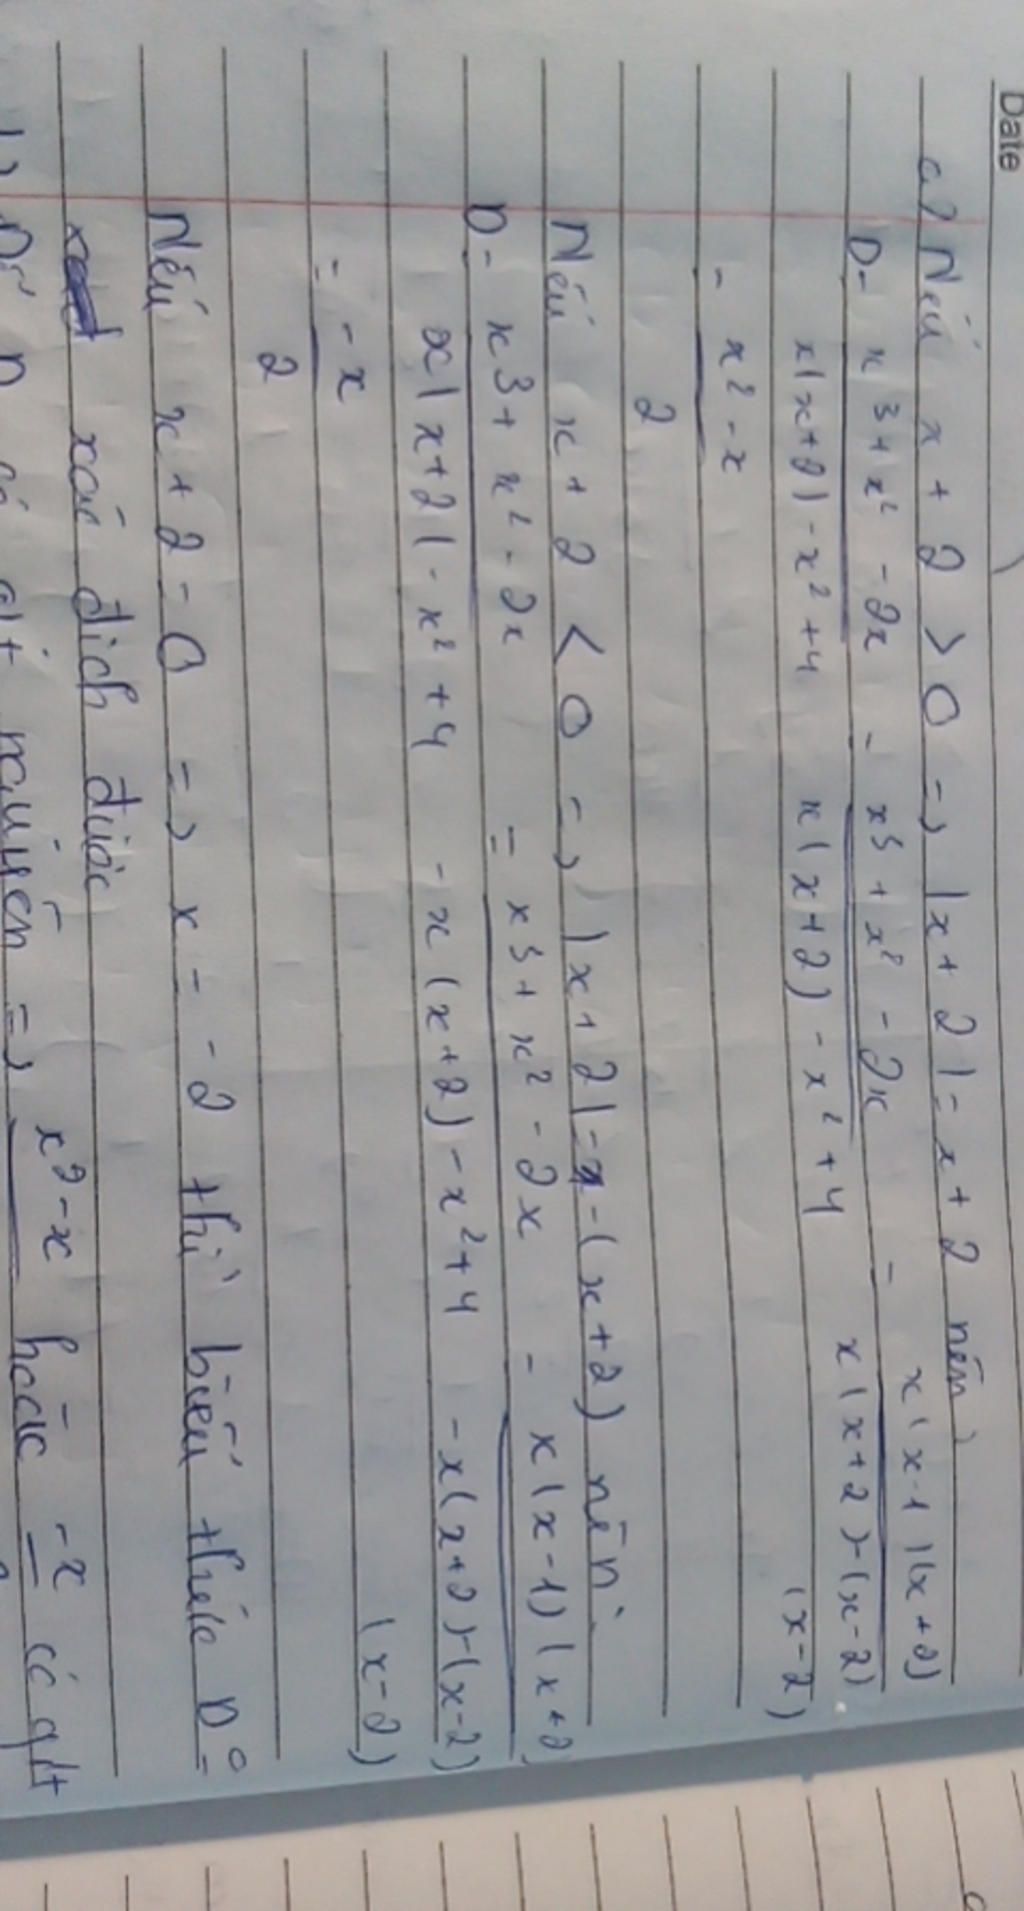 Date
a) Nếu x + 2 > 0 => |x + 2| = x + 2 nên
D = x³ + x² - 2x = x³ + x² - 2x = x(x-1)(x+2)
x|x+2| - x² + 4 x(x+2) - x² + 4 x(x+2)-(x-2)
(x-2)
= x² - x
2
Nếu x + 2 < 0 => |x + 2| = -(x+2) nên
D = x³ + x² - 2x = x³ + x² - 2x = x(x-1)(x+2)
x|x+2| - x² + 4 - x(x+2) - x² + 4 -x(x+2)-(x-2)
(x-2)
= -x
2
Nếu x + 2 = 0 => x = -2 thì biểu thức D
xác định được
nguyên => x² - x hoặc -x có